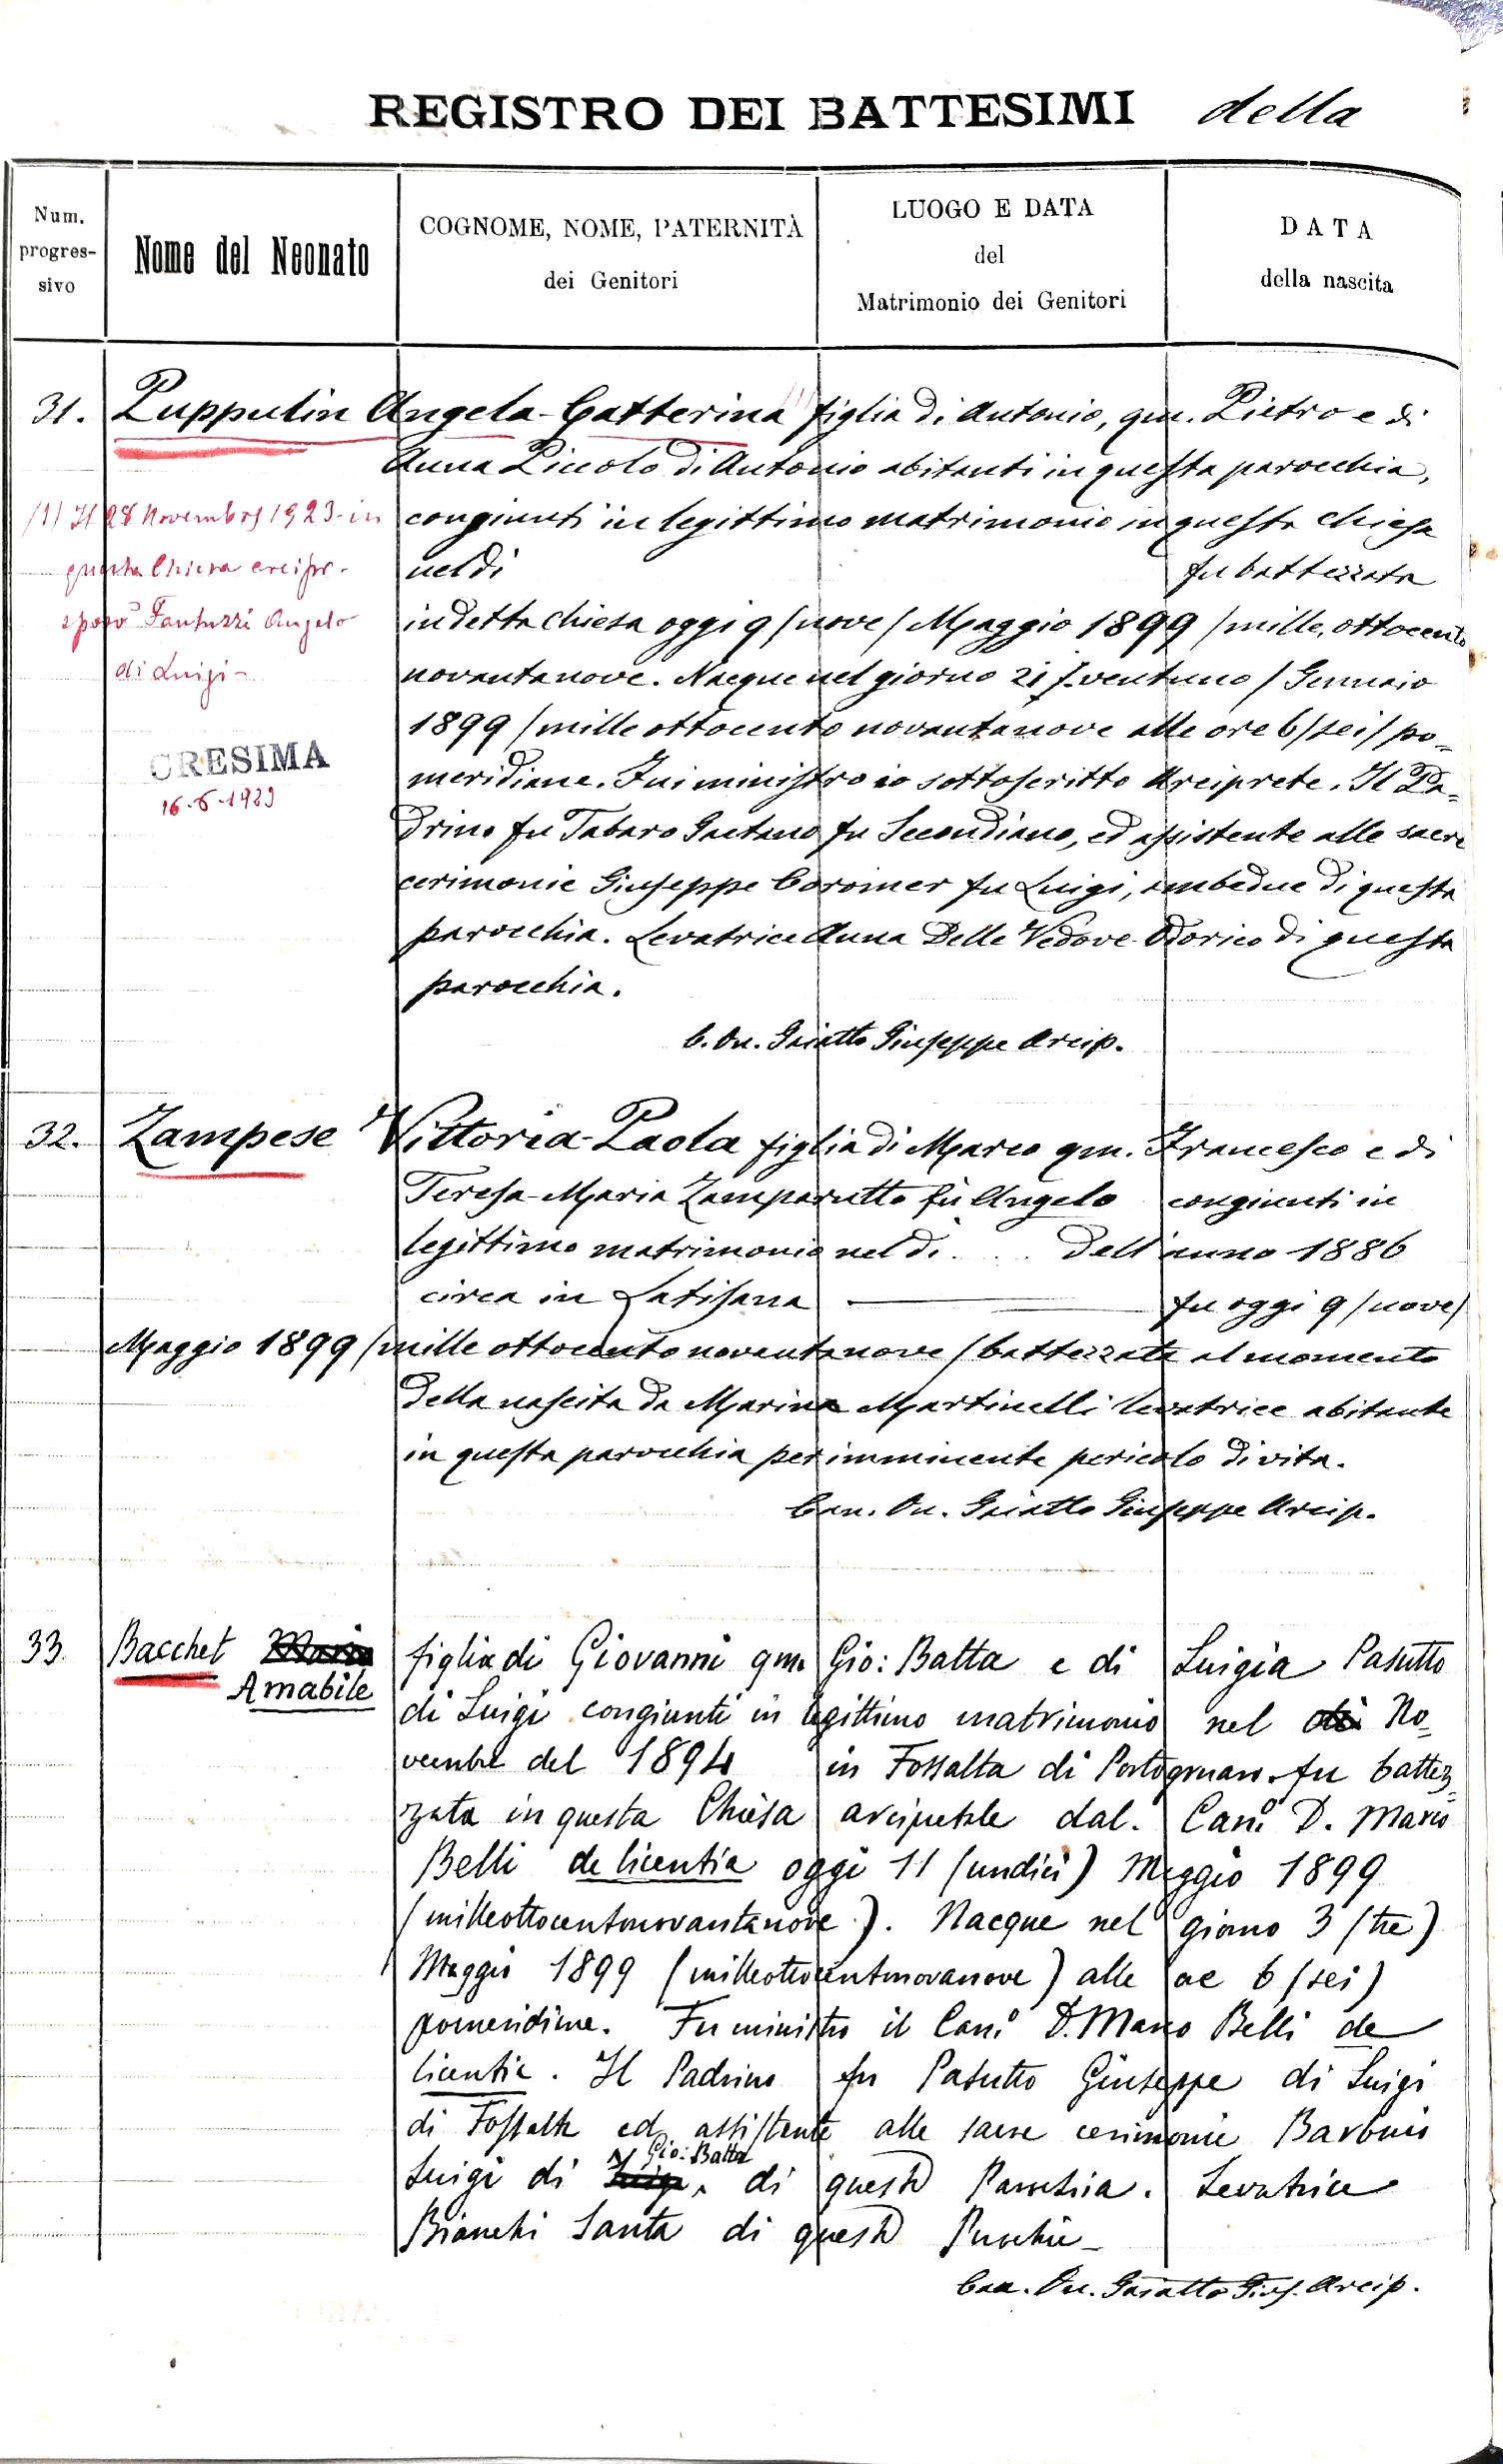 REGISTRO DEI BATTESIMI della
Num.
progres-
sivo
Nome del Neonato
COGNOME, NOME, PATERNITÀ
dei Genitori
LUOGO E DATA
del
Matrimonio dei Genitori
DATA
della nascita
31. Puppulin Angela-Catterina (1) figlia di Antonio, qm. Pietro e di
Anna Piccolo di Antonio abitanti in questa parocchia,
congiunti in legittimo matrimonio in questa chiesa
nel dì fu battezzata
in detta chiesa oggi 9 /nove/ Maggio 1899 /mille, ottocento
novantanove. Nacque nel giorno 21 /ventuno/ Gennaio
1899 /mille ottocento novantanove alle ore 6 /sei/ po-
meridiane. Fui ministro io sottoscritto Arciprete. Il Pa-
drino fu Tabaro Gaetano fu Secondiano, ed assistente alle sacre
cerimonie Giuseppe Coromer fu Luigi, ambedue di questa
parocchia. Levatrice Anna Delle Vedove Odorico di questa
parocchia.
C. On. Giatto Giuseppe Arcip.
(1) Il 28 Novembre 1923 in
questa Chiesa arcipr.
sposò Fantuzzi Angelo
di Luigi-
CRESIMA
16-6-1929
32. Zampese Vittoria-Paola figlia di Marco qm. Francesco e di
Teresa-Maria Zamparutto fu Angelo congiunti in
legittimo matrimonio nel dì . . . dell'anno 1886
circa in Latisana fu oggi 9 /nove/
Maggio 1899 /mille ottocento novantanove/ battezzata al momento
della nascita da Marina Martinelli levatrice abitante
in questa parocchia per imminente pericolo di vita.
Can. On. Giatto Giuseppe Arcip.
33. Bacchet Maria figlia di Giovanni qm Gio: Batta e di Luigia Pasutto
Amabile
di Luigi congiunti in legittimo matrimonio nel dì No-
vembre del 1894 in Fossalta di Portogruaro. fu battez-
zata in questa Chiesa arcipretale dal. Can.º D. Marco
Belli de licentia oggi 11 (undici) Maggio 1899
(milleottocentonovantanove). Nacque nel giorno 3 (tre)
Maggio 1899 (milleottocentonovanove) alle ore 6 (sei)
pomeridiane. Fu ministro il Can.º D. Marco Belli de
licentia. Il Padrino fu Pasutto Giuseppe di Luigi
di Fossalta ed assistente alle sacre cerimonie Barbuio
Gio: Batta
Luigi di Luigi, di questa Parochia. Levatrice
Bianchi Santa di questa Parochia-
Can. On. Giatto Gius. Arcip.